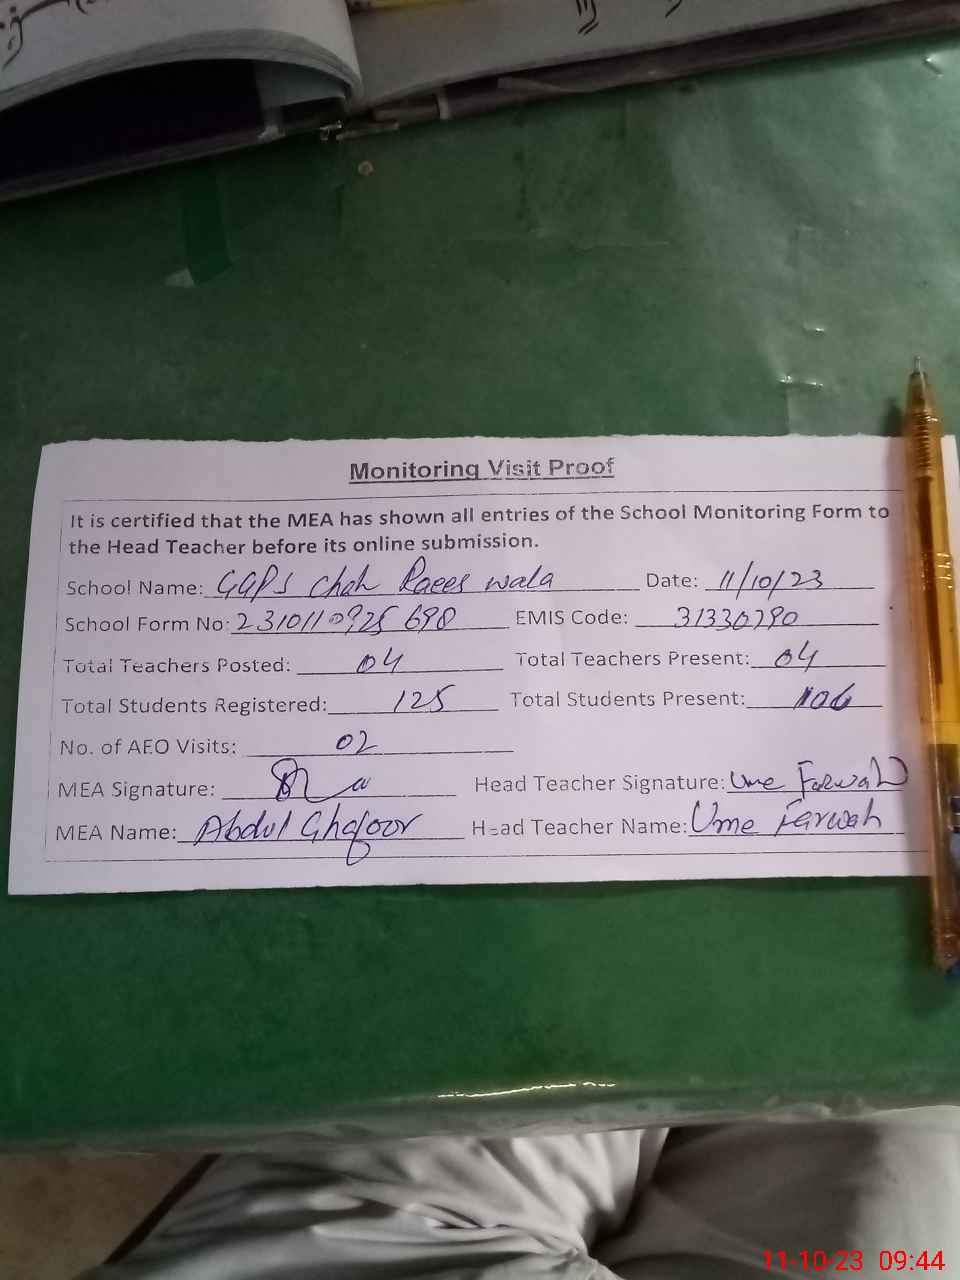 Monitoring Visit Proof
It is certified that the MEA has shown all entries of the School Monitoring Form to
the Head Teacher before its online submission.
School Name: GGPS Chah Raees wala Date: 11/10/23
School Form No: 2310110925698 EMIS Code: 31330290
Total Teachers Posted: 04 Total Teachers Present: 04
Total Students Registered: 125 Total Students Present: 106
No. of AEO Visits: 02
MEA Signature: Head Teacher Signature: Ume Farwah
MEA Name: Abdul Ghafoor Head Teacher Name: Ume Farwah
11-10-23 09:44